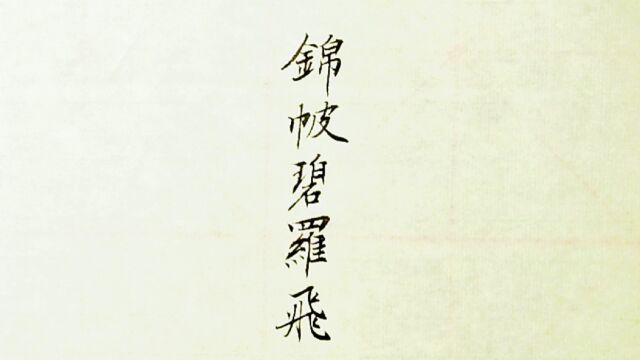 錦帔碧羅飛